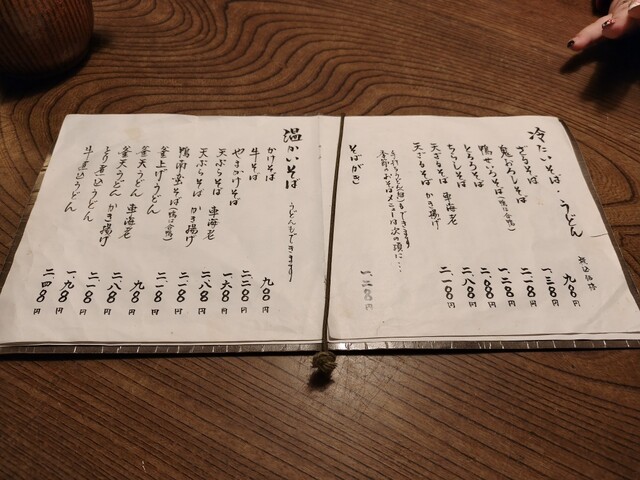 冷たいそば・うどん
税込価格
ざるそば 九〇〇円
鬼おろしそば 一、二〇〇円
鴨せいろそば(鴨は合鴨) 二、〇〇〇円
とろろそば
ちらしそば
天ざるそば 車海老
天ざるそば かき揚げ 二、一〇〇円
手打ちうどん(白)もできます
季節のおそばメニューは次の項に…
そばがき 一、二〇〇円
温かいそば うどんもできます
かけそば 九〇〇円
牛そば 二、二〇〇円
やまかけそば 一、六〇〇円
天ぷらそば 車海老 二、八〇〇円
天ぷらそば かき揚げ 二、一〇〇円
鴨南蛮そば(鴨は合鴨) 二、一〇〇円
釜上げうどん 九〇〇円
釜天うどん 車海老 二、八〇〇円
釜天うどん かき揚げ 二、一〇〇円
とり煮込うどん 一、九〇〇円
牛煮込うどん 二、四〇〇円